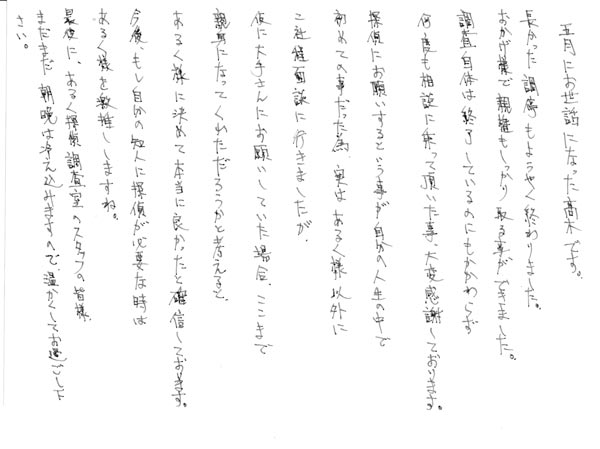 五月にお世話になった高木です。
長かった調停もようやく終わりました。
おかげ様で親権もしっかり取る事ができました。
調査自体は終了しているのにもかかわらず
何度も相談に乗って頂いた事、大変感謝しております。
探偵にお願いするという事が自分の人生の中で
初めての事だった為、実はあるく様以外に
二社程面談に行きましたが、
仮に大手さんにお願いしていた場合、ここまで
親身になってくれただろうかと考えると、
あるく様に決めて本当に良かったと確信しております。
今後、もし自分の知人に探偵が必要な時は
あるく様を推しますね。
最後に、あるく探偵調査室のスタッフの皆様、
まだまだ朝晩は冷え込みますので、温かくしてお過ごし下
さい。